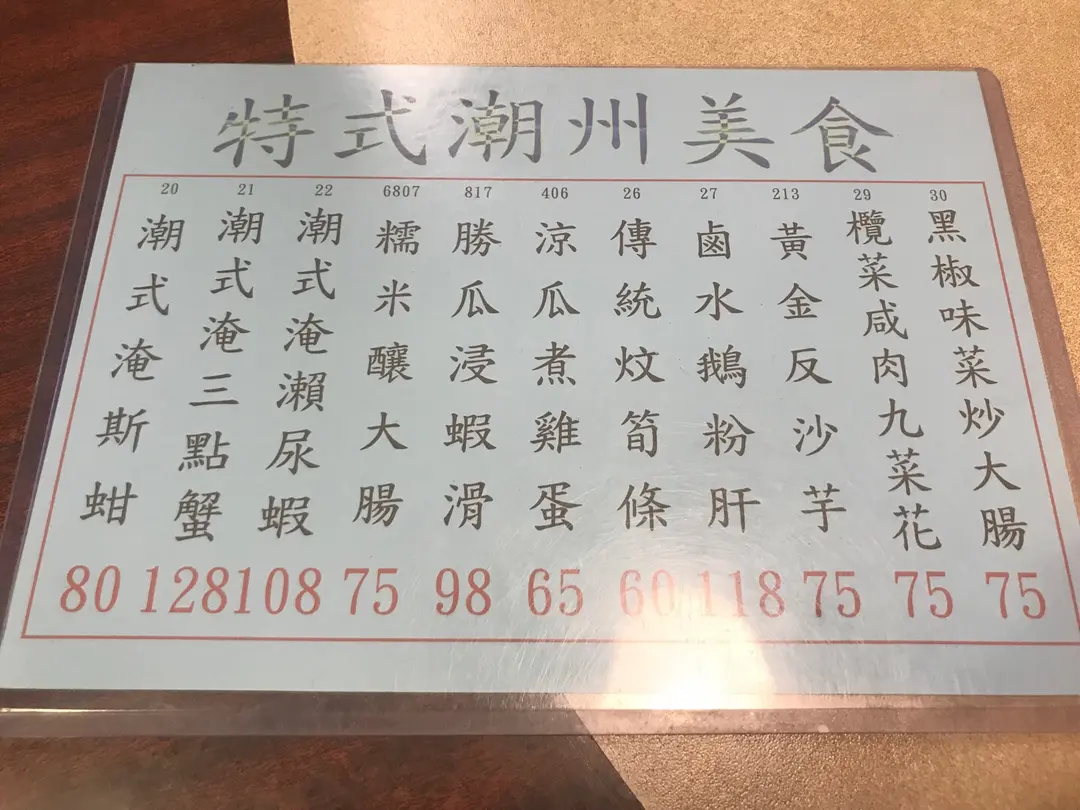 特式潮州美食
20
潮式淹斯蚶
80
21
潮式淹三點蟹
128
22
潮式淹瀨尿蝦
108
6807
糯米釀大腸
75
817
勝瓜浸蝦滑
98
406
涼瓜煮雞蛋
65
26
傳統炆筍條
60
27
鹵水鵝粉肝
118
213
黃金反沙芋
75
29
欖菜咸肉九菜花
75
30
黑椒味菜炒大腸
75